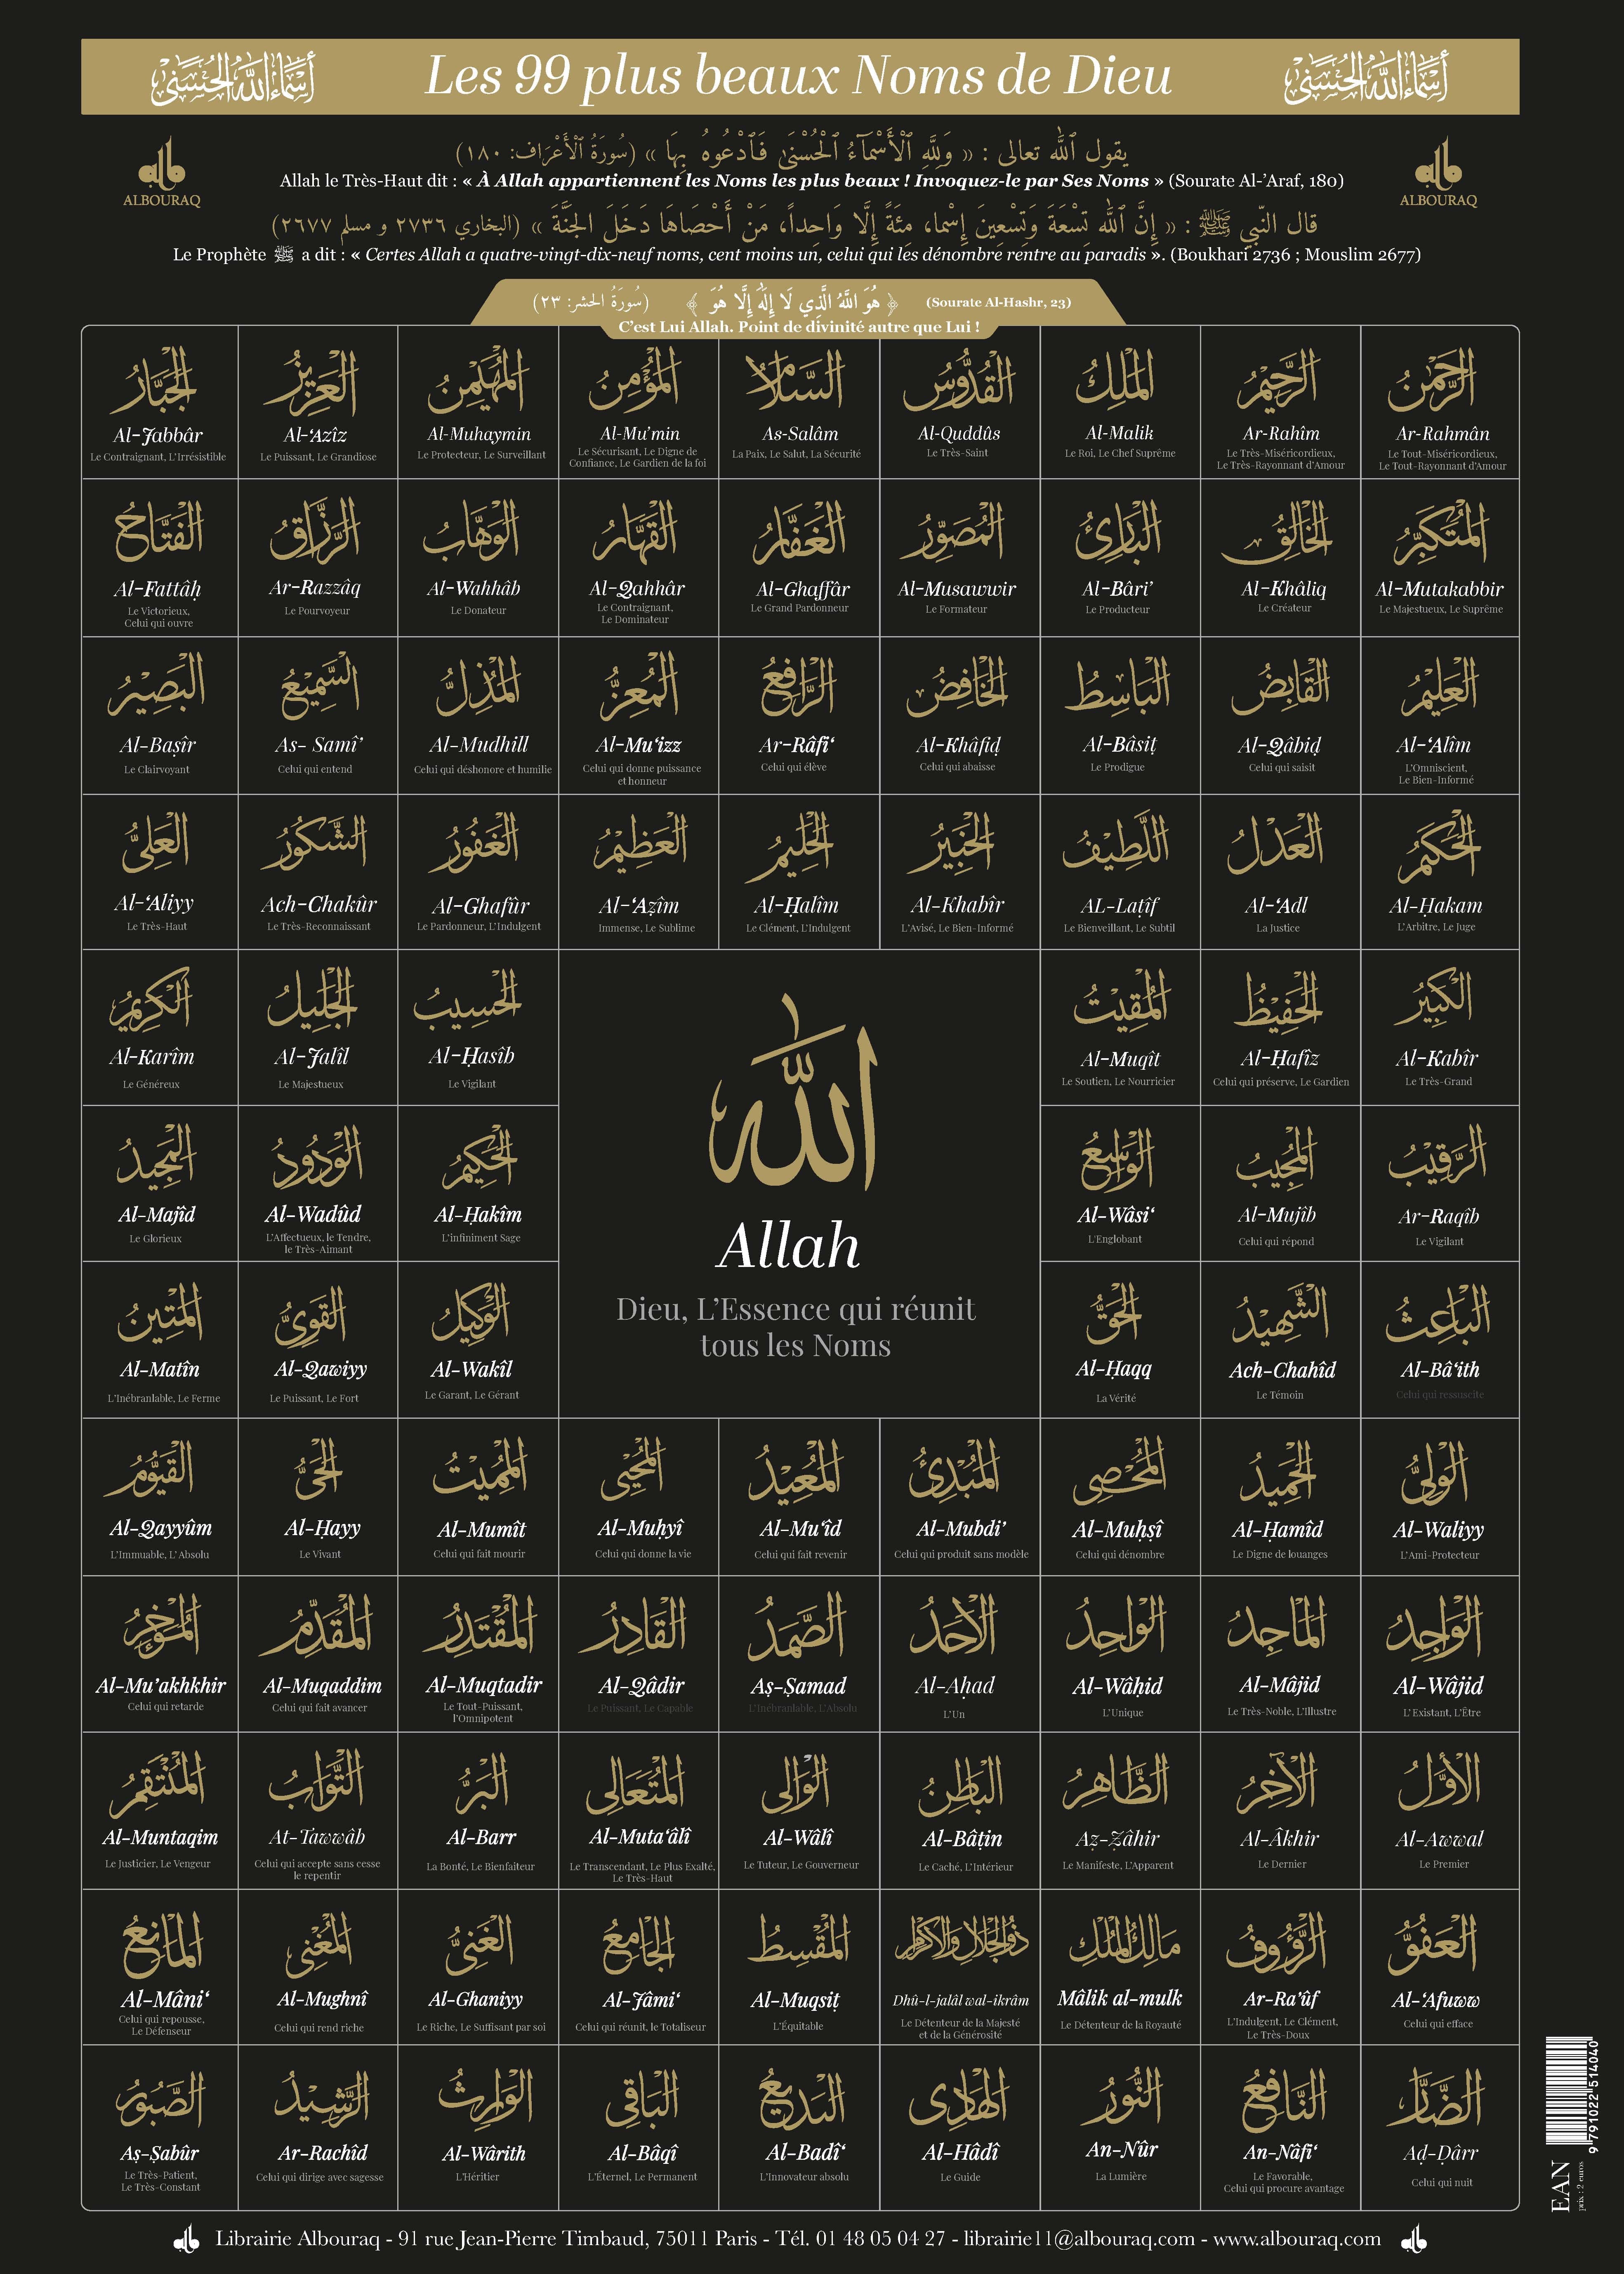 أسماء الله الحسنى
Les 99 plus beaux Noms de Dieu
أسماء الله الحسنى
ALBOURAQ
ALBOURAQ
يقول ٱللّٰه تعالى : « وَلِلَّهِ ٱلْأَسْمَآءُ ٱلْحُسْنَىٰ فَٱدْعُوهُ بِهَا » (سُورَةُ ٱلْأَعْرَاف: ١٨٠)
Allah le Très-Haut dit : « À Allah appartiennent les Noms les plus beaux ! Invoquez-le par Ses Noms » (Sourate Al-’Araf, 180)
قال النّبي ﷺ : « إِنَّ ٱللّٰه تِسْعَةَ وَتِسْعِينَ إِسْما، مِئَةً إِلَّا وَاحِداً، مَنْ أَحْصَاهَا دَخَلَ الجَنَّةَ » (البخاري ٢٧٣٦ و مسلم ٢٦٧٧)
Le Prophète ﷺ a dit : « Certes Allah a quatre-vingt-dix-neuf noms, cent moins un, celui qui les dénombre rentre au paradis ». (Boukhari 2736 ; Mouslim 2677)
(سُورَةُ الحشر: ٢٣) ﴿ هُوَ اللَّهُ الَّذِي لَا إِلَٰهَ إِلَّا هُوَ ﴾ (Sourate Al-Hashr, 23)
C’est Lui Allah. Point de divinité autre que Lui !
الرَّحْمٰنُ
Ar-Rahmân
Le Tout-Miséricordieux,
Le Tout-Rayonnant d’Amour
الرَّحِيْمُ
Ar-Rahîm
Le Très-Miséricordieux,
Le Très-Rayonnant d’Amour
المَلِكُ
Al-Malik
Le Roi, Le Chef Suprême
القُدُّوْسُ
Al-Quddûs
Le Très-Saint
السَّلَامُ
As-Salâm
La Paix, Le Salut, La Sécurité
المُؤْمِنُ
Al-Mu’min
Le Sécurisant, Le Digne de
Confiance, Le Gardien de la foi
المُهَيْمِنُ
Al-Muhaymin
Le Protecteur, Le Surveillant
العَزِيْزُ
Al-‘Azîz
Le Puissant, Le Grandiose
الجَبَّارُ
Al-Jabbâr
Le Contraignant, L’Irrésistible
المُتَكَبِّرُ
Al-Mutakabbir
Le Majestueux, Le Suprême
الخَالِقُ
Al-Khâliq
Le Créateur
البَارِئُ
Al-Bâri’
Le Producteur
المُصَوِّرُ
Al-Musawwir
Le Formateur
الغَفَّارُ
Al-Ghaffâr
Le Grand Pardonneur
القَهَّارُ
Al-Qahhâr
Le Contraignant,
Le Dominateur
الوَهَّابُ
Al-Wahhâb
Le Donateur
الرَّزَّاقُ
Ar-Razzâq
Le Pourvoyeur
الفَتَّاحُ
Al-Fattâḥ
Le Victorieux,
Celui qui ouvre
العَلِيْمُ
Al-‘Alîm
L’Omniscient,
Le Bien-Informé
القَابِضُ
Al-Qâbiḍ
Celui qui saisit
البَاسِطُ
Al-Bâsiṭ
Le Prodigue
الخَافِضُ
Al-Khâfiḍ
Celui qui abaisse
الرَّافِعُ
Ar-Râfi‘
Celui qui élève
المُعِزُّ
Al-Mu‘izz
Celui qui donne puissance
et honneur
المُذِلُّ
Al-Mudhill
Celui qui déshonore et humilie
السَّمِيْعُ
As- Samî’
Celui qui entend
البَصِيْرُ
Al-Baṣîr
Le Clairvoyant
الحَكَمُ
Al-Ḥakam
L’Arbitre, Le Juge
العَدْلُ
Al-‘Adl
La Justice
اللَّطِيْفُ
AL-Laṭîf
Le Bienveillant, Le Subtil
الخَبِيْرُ
Al-Khabîr
L’Avisé, Le Bien-Informé
الحَلِيْمُ
Al-Ḥalîm
Le Clément, L’Indulgent
العَظِيْمُ
Al-‘Aẓîm
Immense, Le Sublime
الغَفُوْرُ
Al-Ghafûr
Le Pardonneur, L’Indulgent
الشَّكُوْرُ
Ach-Chakûr
Le Très-Reconnaissant
العَلِيُّ
Al-‘Aliyy
Le Très-Haut
الكَبِيْرُ
Al-Kabîr
Le Très-Grand
الحَفِيْظُ
Al-Ḥafîz
Celui qui préserve, Le Gardien
المُقِيْتُ
Al-Muqît
Le Soutien, Le Nourricier
الله
Allah
Dieu, L’Essence qui réunit
tous les Noms
الحَسِيبُ
Al-Ḥasîb
Le Vigilant
الجَلِيلُ
Al-Jalîl
Le Majestueux
الكَرِيمُ
Al-Karîm
Le Généreux
الرَّقِيْبُ
Ar-Raqîb
Le Vigilant
المُجِيْبُ
Al-Mujîb
Celui qui répond
الوَاسِعُ
Al-Wâsi‘
L’Englobant
الحَكِيْمُ
Al-Ḥakîm
L’infiniment Sage
الوَدُوْدُ
Al-Wadûd
L’Affectueux, le Tendre,
le Très-Aimant
المَجِيْدُ
Al-Majîd
Le Glorieux
البَاعِثُ
Al-Bâ‘ith
Celui qui ressuscite
الشَّهِيْدُ
Ach-Chahîd
Le Témoin
الحَقُّ
Al-Ḥaqq
La Vérité
الوَكِيْلُ
Al-Wakîl
Le Garant, Le Gérant
القَوِيُّ
Al-Qawiyy
Le Puissant, Le Fort
المَتِيْنُ
Al-Matîn
L’Inébranlable, Le Ferme
الوَلِيُّ
Al-Waliyy
L’Ami-Protecteur
الحَمِيْدُ
Al-Ḥamîd
Le Digne de louanges
المُحْصِي
Al-Muḥṣî
Celui qui dénombre
المُبْدِئُ
Al-Mubdi’
Celui qui produit sans modèle
المُعِيْدُ
Al-Mu‘îd
Celui qui fait revenir
المُحْيِي
Al-Muḥyî
Celui qui donne la vie
المُمِيْتُ
Al-Mumît
Celui qui fait mourir
الحَيُّ
Al-Ḥayy
Le Vivant
القَيُّوْمُ
Al-Qayyûm
L’Immuable, L’ Absolu
الوَاجِدُ
Al-Wâjid
L’ Existant, L’Être
المَاجِدُ
Al-Mâjid
Le Très-Noble, L’Illustre
الوَاحِدُ
Al-Wâḥid
L’Unique
الأَحَدُ
Al-Aḥad
L’Un
الصَّمَدُ
Aṣ-Ṣamad
L’Inébranlable, L’Absolu
القَادِرُ
Al-Qâdir
Le Puissant, Le Capable
المُقْتَدِرُ
Al-Muqtadir
Le Tout-Puissant,
l’Omnipotent
المُقَدِّمُ
Al-Muqaddim
Celui qui fait avancer
المُؤَخِّرُ
Al-Mu’akhkhir
Celui qui retarde
الأَوَّلُ
Al-Awwal
Le Premier
الآخِرُ
Al-Âkhir
Le Dernier
الظَّاهِرُ
Aẓ-Ẓâhir
Le Manifeste, L’Apparent
البَاطِنُ
Al-Bâtin
Le Caché, L’Intérieur
الوَالِي
Al-Wâlî
Le Tuteur, Le Gouverneur
المُتَعَالِي
Al-Muta‘âlî
Le Transcendant, Le Plus Exalté,
Le Très-Haut
البَرُّ
Al-Barr
La Bonté, Le Bienfaiteur
التَّوَّابُ
At-Tawwâb
Celui qui accepte sans cesse
le repentir
المُنْتَقِمُ
Al-Muntaqim
Le Justicier, Le Vengeur
العَفُوُّ
Al-‘Afuww
Celui qui efface
الرَّؤُوفُ
Ar-Ra’ûf
L’Indulgent, Le Clément,
Le Très-Doux
مَالِكُ المُلْكِ
Mâlik al-mulk
Le Détenteur de la Royauté
ذُو الجَلَالِ وَالإِكْرَامِ
Dhû-l-jalâl wal-ikrâm
Le Détenteur de la Majesté
et de la Générosité
المُقْسِطُ
Al-Muqsiṭ
L’Équitable
الجَامِعُ
Al-Jâmi‘
Celui qui réunit, le Totaliseur
الغَنِيُّ
Al-Ghaniyy
Le Riche, Le Suffisant par soi
المُغْنِي
Al-Mughnî
Celui qui rend riche
المَانِعُ
Al-Mâni‘
Celui qui repousse,
Le Défenseur
الضَّارُّ
Aḍ-Ḍârr
Celui qui nuit
النَّافِعُ
An-Nâfi‘
Le Favorable,
Celui qui procure avantage
النُّوْرُ
An-Nûr
La Lumière
الهَادِي
Al-Hâdî
Le Guide
البَدِيْعُ
Al-Badî‘
L’Innovateur absolu
البَاقِي
Al-Bâqî
L’Éternel, Le Permanent
الوَارِثُ
Al-Wârith
L’Héritier
الرَّشِيْدُ
Ar-Rachîd
Celui qui dirige avec sagesse
الصَّبُوْرُ
Aṣ-Ṣabûr
Le Très-Patient,
Le Très-Constant
9 791022 514040
EAN
prix : 2 euros
Librairie Albouraq - 91 rue Jean-Pierre Timbaud, 75011 Paris - Tél. 01 48 05 04 27 - librairie11@albouraq.com - www.albouraq.com